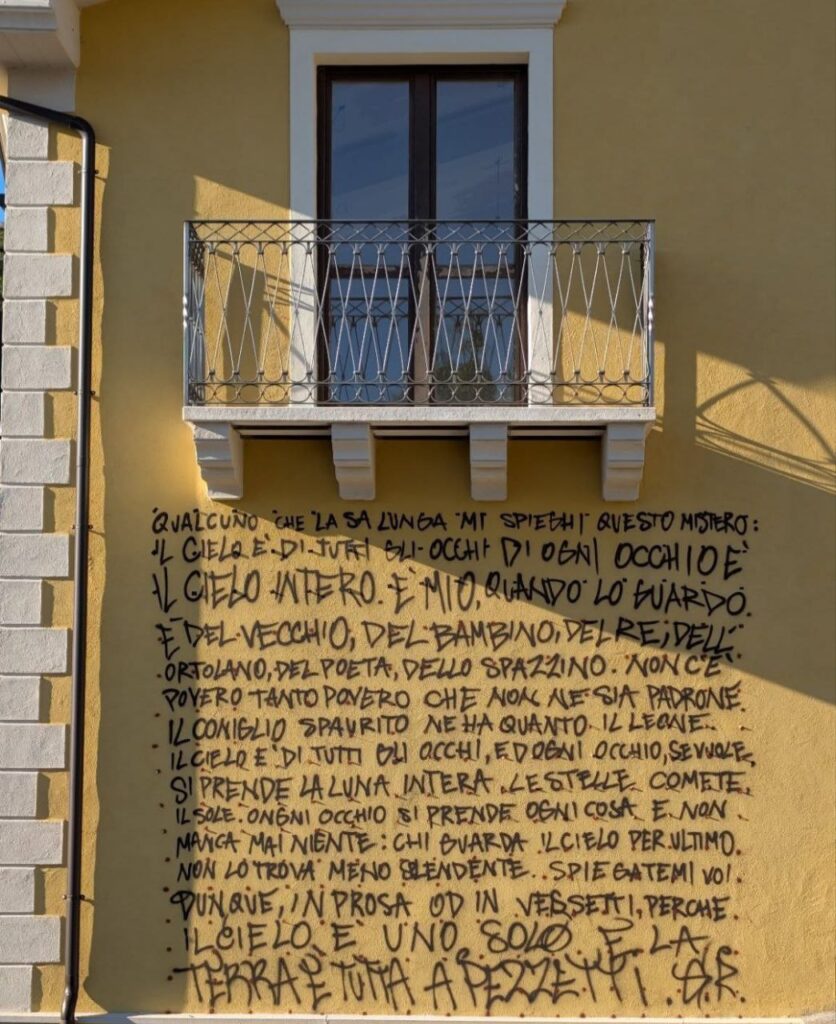 QUALCUNO CHE LA SA LUNGA MI SPIEGHI QUESTO MISTERO:
IL CIELO E' DI TUTTI GLI OCCHI DI OGNI OCCHIO E'
IL CIELO INTERO. E' MIO, QUANDO LO GUARDO.
E' DEL VECCHIO, DEL BAMBINO, DEL RE, DELL'
ORTOLANO, DEL POETA, DELLO SPAZZINO. NON C'E'
POVERO TANTO POVERO CHE NON NE SIA PADRONE.
IL CONIGLIO SPAURITO NE HA QUANTO IL LEONE.
IL CIELO E' DI TUTTI GLI OCCHI, ED OGNI OCCHIO, SE VUOLE,
SI PRENDE LA LUNA INTERA, LE STELLE COMETE,
IL SOLE. ONGNI OCCHIO SI PRENDE OGNI COSA E NON
MANCA MAI NIENTE: CHI GUARDA IL CIELO PER ULTIMO
NON LO TROVA MENO SLENDENTE. SPIEGATEMI VOI
DUNQUE, IN PROSA OD IN VERSETTI, PERCHE'
IL CIELO E' UNO SOLO E LA
TERRA E' TUTTA A PEZZETTI. G.R.